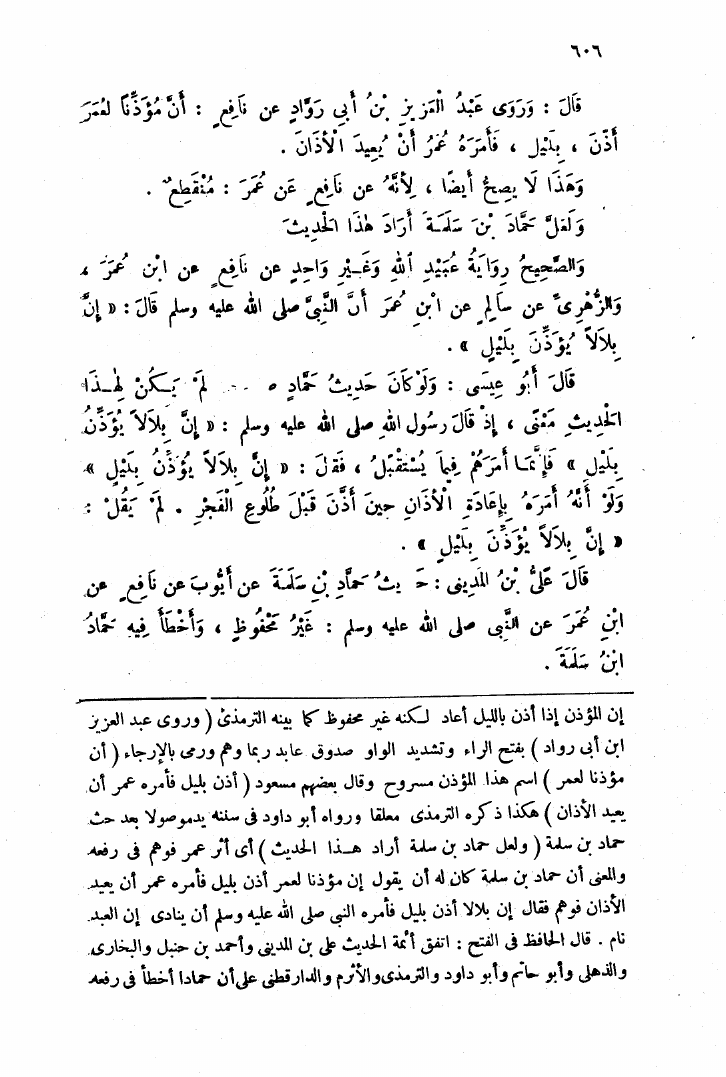 ٦٠٦
قَالَ : وَرَوَى عَبْدُ الْعَزِيزِ بْنُ أَبِي رَوَّادٍ عن نَافِعٍ : أَنَّ مُؤَذِّنًا لعُمَرَ
أَذَّنَ ، بِلَيْلٍ ، فَأَمَرَهُ عُمَرُ أَنْ يُعِيدَ الْأَذَانَ .
وَهَذَا لَا يَصِحُّ أَيضًا ، لِأَنَّهُ عن نَافِعٍ عَن عُمَرَ : مُنْقَطِعٌ .
وَلَعَلَّ حَمَّادَ بْنَ سَلَمَةَ أَرَادَ هٰذَا الْحَدِيثَ
وَالصَّحِيحُ رِوَايَةُ عُبَيْدِ اللهِ وَغَيْرِ وَاحِدٍ عن نَافِعٍ عن ابْنِ عُمَرَ ،
وَالزُّهْرِىِّ عن سَالِمٍ عن ابْنِ عُمَرَ أَنَّ النَّبِىَّ صلى الله عليه وسلم قَالَ : « إِنَّ
بِلاَلاً يُؤَذِّنَ بِلَيْلٍ » .
قَالَ أَبُو عِيسَى : وَلَوْ كَانَ حَدِيثُ حَمَّادٍ لَمْ يَكُنْ لِهٰذَا
الْحَدِيثِ مَعْنًى ، إِذْ قَالَ رَسُول اللهِ صلى الله عليه وسلم : « إِنَّ بِلاَلاً يُؤَذِّنُ
بِلَيْلٍ » فَإِنَّمَا أَمَرَهُمْ فِيمَا يُسْتَقْبَلُ ، فَقَالَ : « إِنَّ بِلاَلاً يُؤَذِّنُ بِلَيْلٍ »
وَلَوْ أَنَّهُ أَمَرَهُ بِإِعَادَةِ الْأَذَانِ حِينَ أَذَّنَ قَبْلَ طُلُوعِ الْفَجْرِ . لَمْ يَقُلْ :
« إِنَّ بِلاَلاً يُؤَذِّنَ بِلَيْلٍ » .
قَالَ عَلِىُّ بْنُ الْمَدِينى : حَ يثُ حَمَّادِ بْنِ سَلَمَةَ عن أَيُّوبَ عن نَافِعٍ عن
ابْنِ عُمَرَ عن النَّبِى صلى الله عليه وسلم : غَيْرُ مَحْفُوظٍ ، وَأَخْطَأَ فِيهِ حَمَّادُ
ابْنُ سَلَمَةَ .
إن المؤذن إذا أذن بالليل أعاد لكنه غير محفوظ كما بينه الترمذىُ ( وروى عبد العزيز
ابن أبى رواد ) بفتح الراء وتشديد الواو صدوق عابد ربما وهم ورمى بالإرجاء ( أن
مؤذنا لعمر ) اسم هذا المؤذن مسروح وقال بعضهم مسعود ( أذن بليل فأمره عمر أن
يعيد الأذان ) هكذا ذكره الترمذى معلقا ورواه أبو داود فى سننه يدموصولا بعد حث
حماد بن سلمة ( ولعل حماد بن سلمة أراد هذا الحديث ) أى أثر عمر فوهم فى رفعه
والمعنى أن حماد بن سلمة كان له أن يقول إن مؤذنا لعمر أذن بليل فأمره عمر أن يعيد
الأذان فوهم فقال إن بلالا أذن بليل فأمره النبى صلى الله عليه وسلم أن ينادى إن العبد
نام . قال الحافظ فى الفتح : اتفق أئمة الحديث على بن المدينى وأحمد بن حنبل والبخارى
والذهلى وأبو حاتم وأبو داود والترمذى والأثرم والدارقطنى على أن حمادا أخطأ فى رفعه